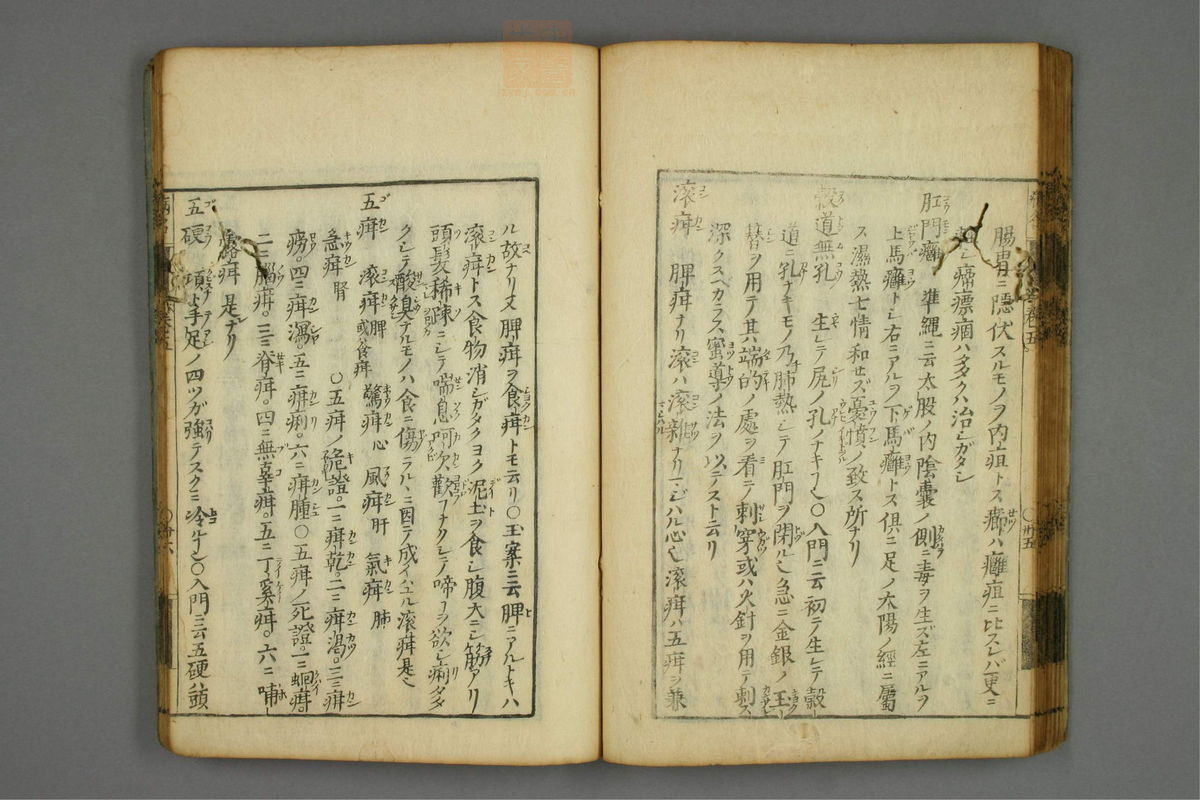 腸胃ニ隱伏スルモノヲ内疽トス癤ハ癰疽ニ比スレバ更ニ
シ癰瘭痼ハ多クハ治シガタシ
肛門癰 準繩ニ云太股ノ内陰囊ノ側ニ毒ヲ生ズ左ニアルヲ
上馬癰トシ右ニアルヲ下馬癰トス俱ニ足ノ太陽ノ經ニ屬
ス濕熱七情和セズ憂憤ノ致ス所ナリ
穀道無孔 生レテ尻ノ孔ノナキ〇入門ニ云初テ生レテ穀
道ニ孔ナキモノ乃肺熱シテ肛門ヲ閉ル急ニ金銀ノ玉
簪ヲ用テ其端的ノ處ヲ看テ刺穿或ハ火針ヲ用テ刺ス
深クスベカラス蜜導ノ法ヲ以テスト云リ
滚疳 脾疳ナリ滚ハ滚雜ナリマジハル心滚疳ハ五疳ヲ兼
ル故ナリ又脾疳ヲ食疳トモ云リ〇玉案ニ云脾ニアルトキハ
滚疳トス食物消シガタクヨク泥土ヲ食シ腹大ニシ筋アリ
頭髮稀踈ニシテ喘息呵欠歡フナクシテ啼ヿヲ欲シ痢タダ
クシテ酸臭ナルモノハ食ニ傷ラルヽニ因テ成イハユル滚疳是
五疳 滚疳脾或食疳 驚疳心 風疳肝 氣疳肺
急疳腎 〇五疳ノ詭證。一ニ疳乾。二ニ疳渴。三ニ疳
癆。四ニ疳瀉。五ニ疳痢。六ニ疳腫〇五疳ノ死證。一ニ蛔疳。
二ニ腦疳。三ニ脊疳。四ニ無辜疳。五ニ丁奚疳。六ニ哺
露疳 是ナリ
五硬 項ト手足ノ四ツガ強テスクミ冷〇入門ニ云五硬ハ頭
卷五
卅五
卅六